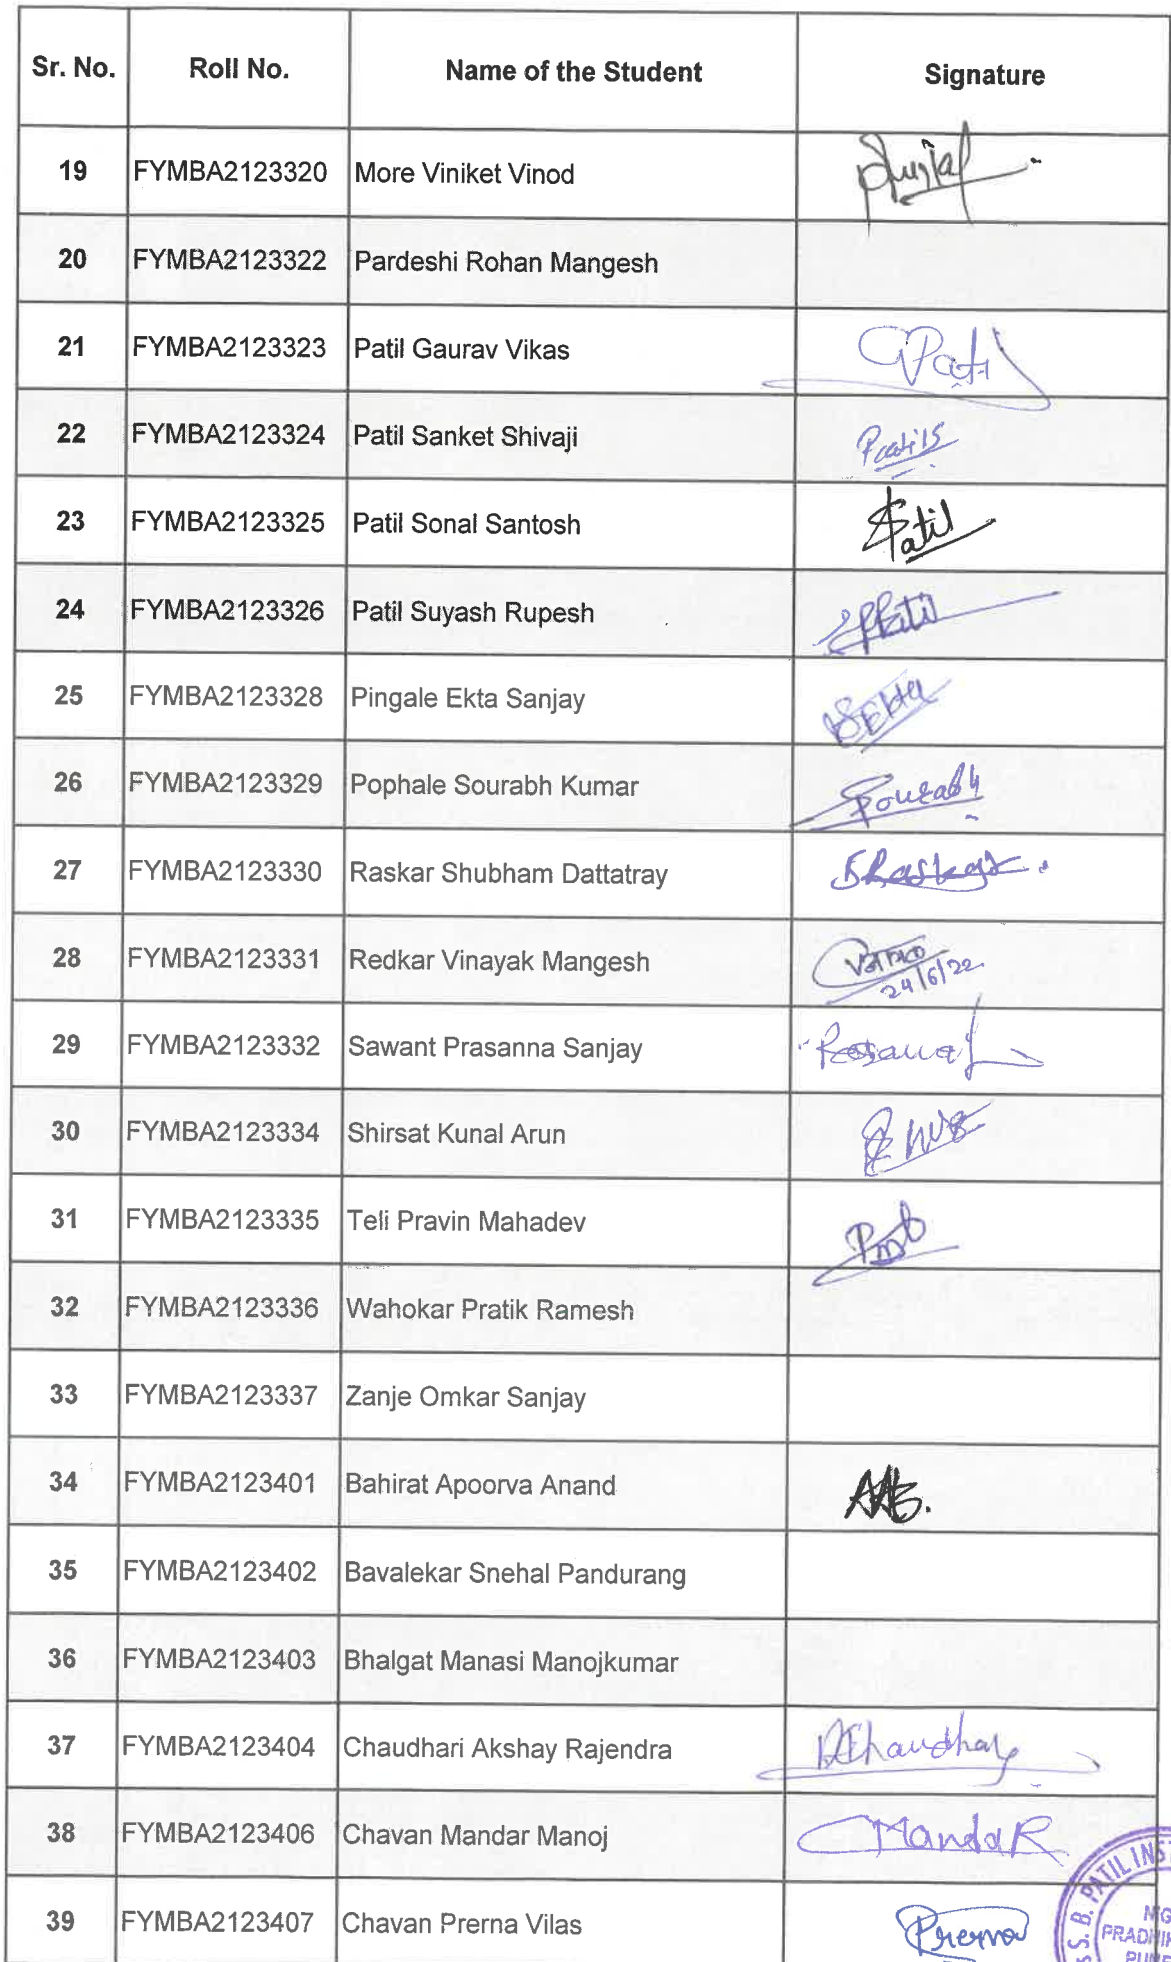 Sr. No. Roll No. Name of the Student Signature
19 FYMBA2123320 More Viniket Vinod
20 FYMBA2123322 Pardeshi Rohan Mangesh
21 FYMBA2123323 Patil Gaurav Vikas GPatil
22 FYMBA2123324 Patil Sanket Shivaji
23 FYMBA2123325 Patil Sonal Santosh SPatil
24 FYMBA2123326 Patil Suyash Rupesh
25 FYMBA2123328 Pingale Ekta Sanjay Ekta
26 FYMBA2123329 Pophale Sourabh Kumar Sourabh
27 FYMBA2123330 Raskar Shubham Dattatray SRaskar
28 FYMBA2123331 Redkar Vinayak Mangesh
24/6/22
29 FYMBA2123332 Sawant Prasanna Sanjay
30 FYMBA2123334 Shirsat Kunal Arun
31 FYMBA2123335 Teli Pravin Mahadev
32 FYMBA2123336 Wahokar Pratik Ramesh
33 FYMBA2123337 Zanje Omkar Sanjay
34 FYMBA2123401 Bahirat Apoorva Anand
35 FYMBA2123402 Bavalekar Snehal Pandurang
36 FYMBA2123403 Bhalgat Manasi Manojkumar
37 FYMBA2123404 Chaudhari Akshay Rajendra
38 FYMBA2123406 Chavan Mandar Manoj MandaR
39 FYMBA2123407 Chavan Prerna Vilas Prerna
S. B. PATIL INS